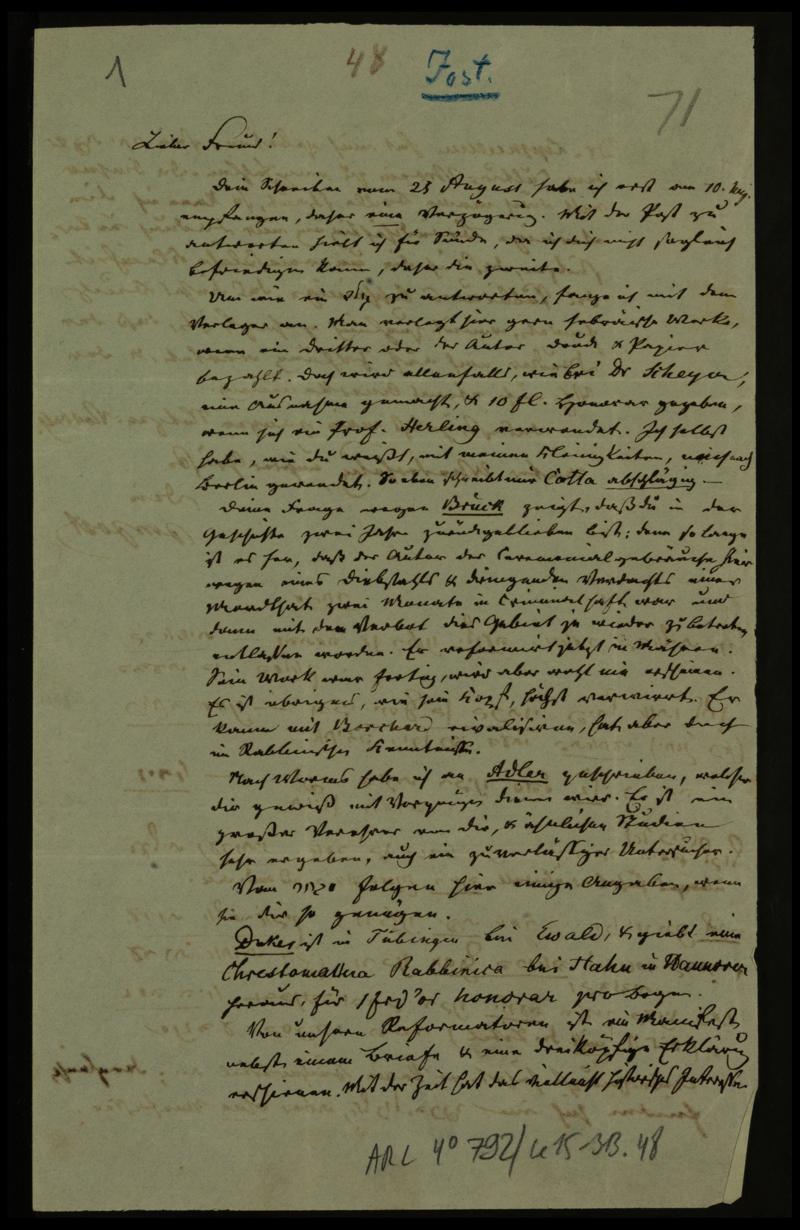 1
48 Jost.
71
Lieber Freund!
Dein Schreiben vom 23 August habe ich erst am 10.
empfangen, daher eine Verzögerung. Mit der Post zu
antworten hielt ich für Sünde, da ich dich nicht sogleich
befriedigen kann, daher die zweite.
Um wie ein zu antworten, fange ich mit dem
Verleger an. Man verlegt hier gern hebräische Werke,
wenn ein Dritter oder der Autor Druck & Papier
bezahlt. Doch wird allenfalls, wie bei Dr Scheyer,
eine Ausnahme gemacht, & 10 fl. Honorar gegeben,
wenn sich ein Prof. Herling verwendet. Ich selbst
habe, wie du weißt, mit meinen Kleinigkeiten, mich nach
Berlin gewendet. So eben schreibt mir Cotta abschlägig. —
Deine Frage wegen Brück zeigt, daß du in der
Geschichte zwei Jahre zurückgeblieben bist; denn so lange
ist es her, daß der Autor der Ceremonialgebräuche hier
wegen eines Diebstahls & dringenden Verdachts einer
Mordthat zwei Monate in Criminalhaft war und
dann mit dem Verbot dies Gebiet je wieder zu betreten
entlassen worden. Er reformirt jetzt in Mähren.
Sein Werk war fertig, wird aber wohl nie erscheinen.
Es ist übrigens, wie sein Kopf, höchst verwirrt. Er
kann mit Borchard rivalisiren, hat aber doch
im Rabbinischen Kenntnisse.
Nach Worms habe ich an Adler geschrieben, welcher
dir gewiß mit Vergnügen dienen wird. Er ist ein
großer Verehrer von dir, & ähnlichen Studien
sehr ergeben, auch ein zuverlässiger Untersucher.
Vom folgen hier einige Angaben, wenn
sie dir so genügen.
Dukes ist in Tübingen bei Ewald, & giebt eine
Chrestomathia Rabbinica bei Hahn in Hannover
heraus, für 1 frd'or honorar pro Bogen.
Von unsern Reformatoren ist ein Manifest
nebst einem Briefe & eine dreiköpfige Erklärung
erschienen. Mit der Zeit hat das vielleicht historisches Interesse.
ARC 4° 792/ 48